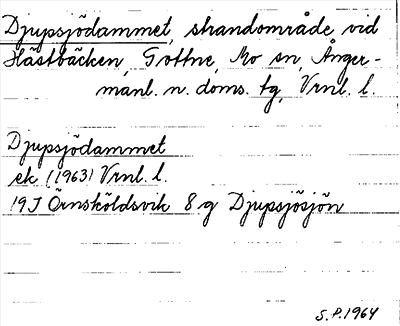 Djupsjödammet, strandområde, vid
Hästbäcken, Gottne, Mo sn, Ånger-
manl. n. doms. tg, Vrnl. l.
Djupsjödammet
ek (1963) Vrnl. l.
19J Örnsköldsvik 8 g Djupsjösjön
S.P. 1964